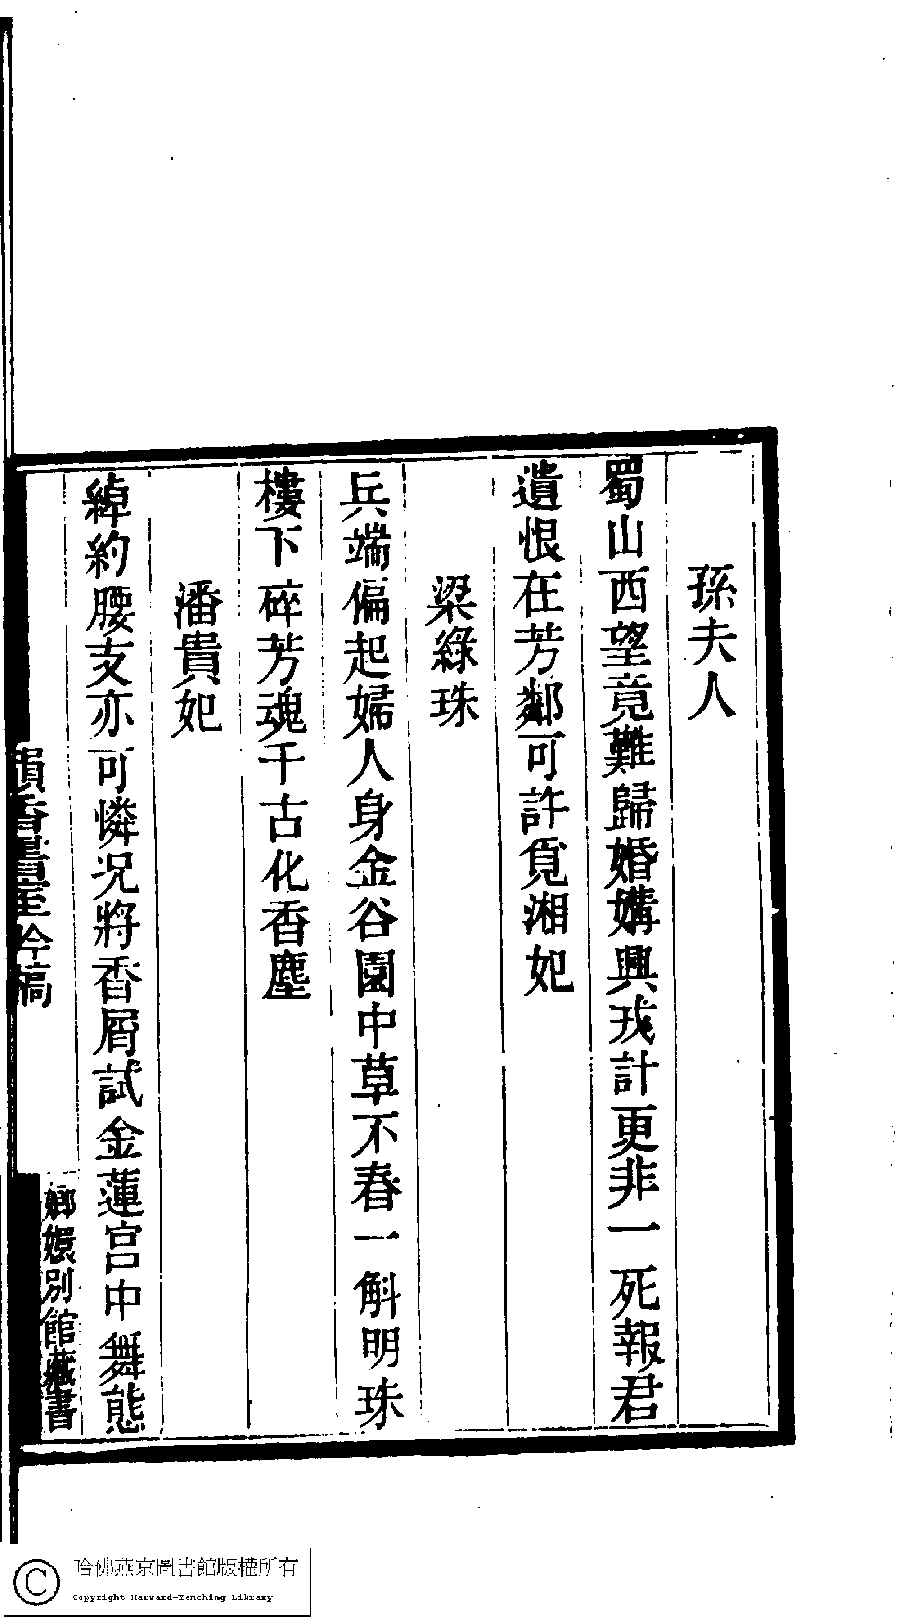 孫夫人
蜀山西望竟難歸婚媾興戎計更非一死報君
遺恨在芳鄰可許覓湘妃
梁綠珠
兵端偏起婦人身金谷園中草不春一斛明珠
樓下碎芳魂千古化香塵
潘貴妃
綽約腰支亦可憐況將香屑試金蓮宮中舞態
韻香書室吟稿
嫏嬛別館藏書
哈佛燕京圖書館版權所有
Copyright Harvard-Yenching Library